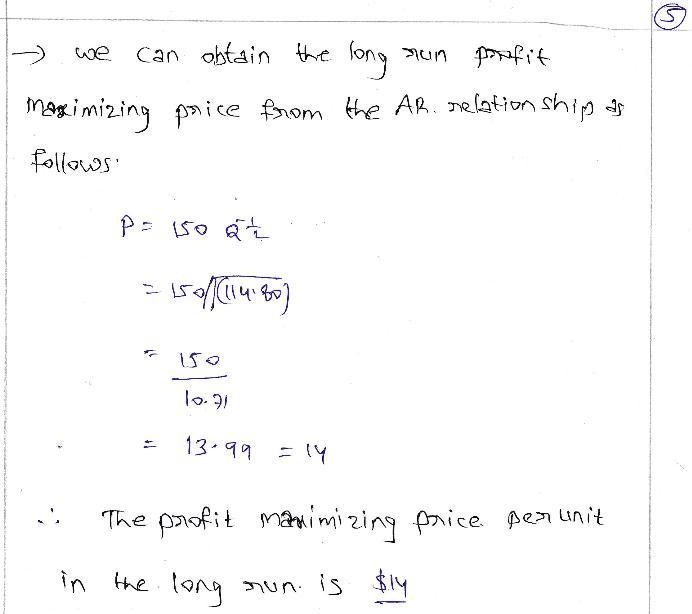 5
→ we can obtain the long run profit
maximizing price from the AR. relationship as
follows.
P = 150 Q^-1/2
= 150/√(114.80)
= 150
10.71
= 13.99 = 14
∴ The profit maximizing price per unit
in the long run. is $14